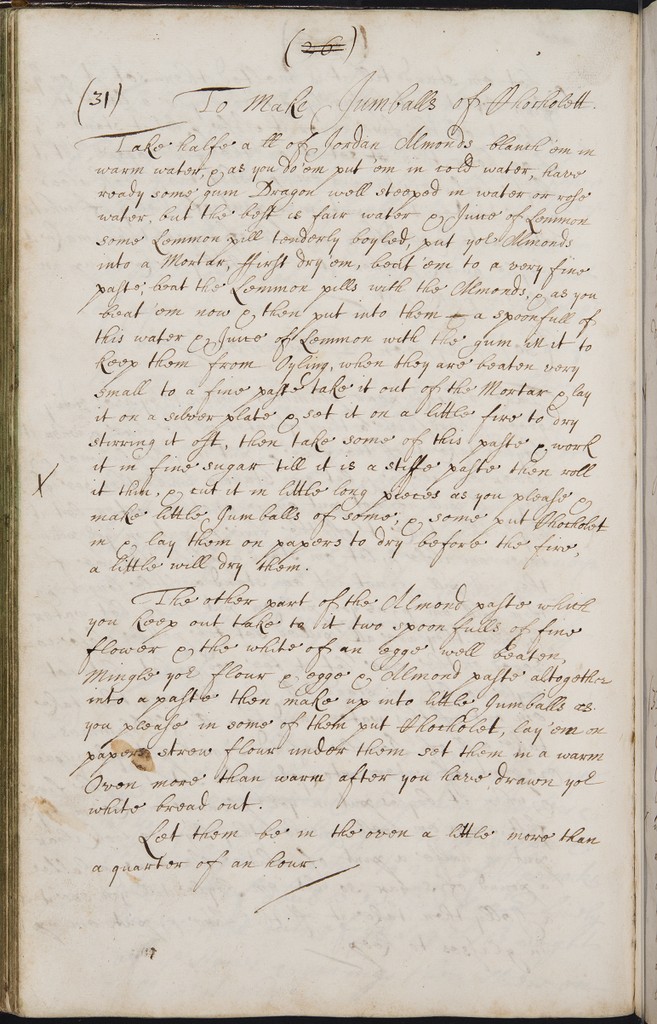 (26)
(31) To Make Jumballs of Chocholett.
Take halfe a ll of Jordan Almonds blanch 'em in
warm water, & as you do 'em put 'em in cold water, have
ready some gum Dragon well steeped in water or rose
water, but the best is fair water & Juice of Lemmon
some Lemmon pill tenderly boyled, put yor Almonds
into a Mortar, ffirst dry 'em, beat 'em to a very fine
paste, beat the Lemmon pills with the Almonds, & as you
beat 'em now & then put into them a spoonfull of
this water & Juice of Lemmon with the gum in it to
keep them from Oyling, when they are beaten very
small to a fine paste take it out of the Mortar & lay
it on a silver plate & set it on a little fire to dry
stirring it oft, then take some of this paste & work
it in fine sugar till it is a stiffe paste then roll
it thin, & cut it in little long pieces as you please &
X make little Jumballs of some, & some put Chocholet
in & lay them on papers to dry before the fire,
a little will dry them.
The other part of the Almond paste which
you keep out take to it two spoonfulls of fine
flower & the white of an egge well beaten,
Mingle yor flour & egge & Almond paste altogether
into a paste then make up into little Jumballs as
you please in some of them put Chocholet, lay 'em on
papers strew flour under them set them in a warm
Oven more than warm after you have drawn yor
white bread out.
Let them be in the oven a little more than
a quarter of an hour.